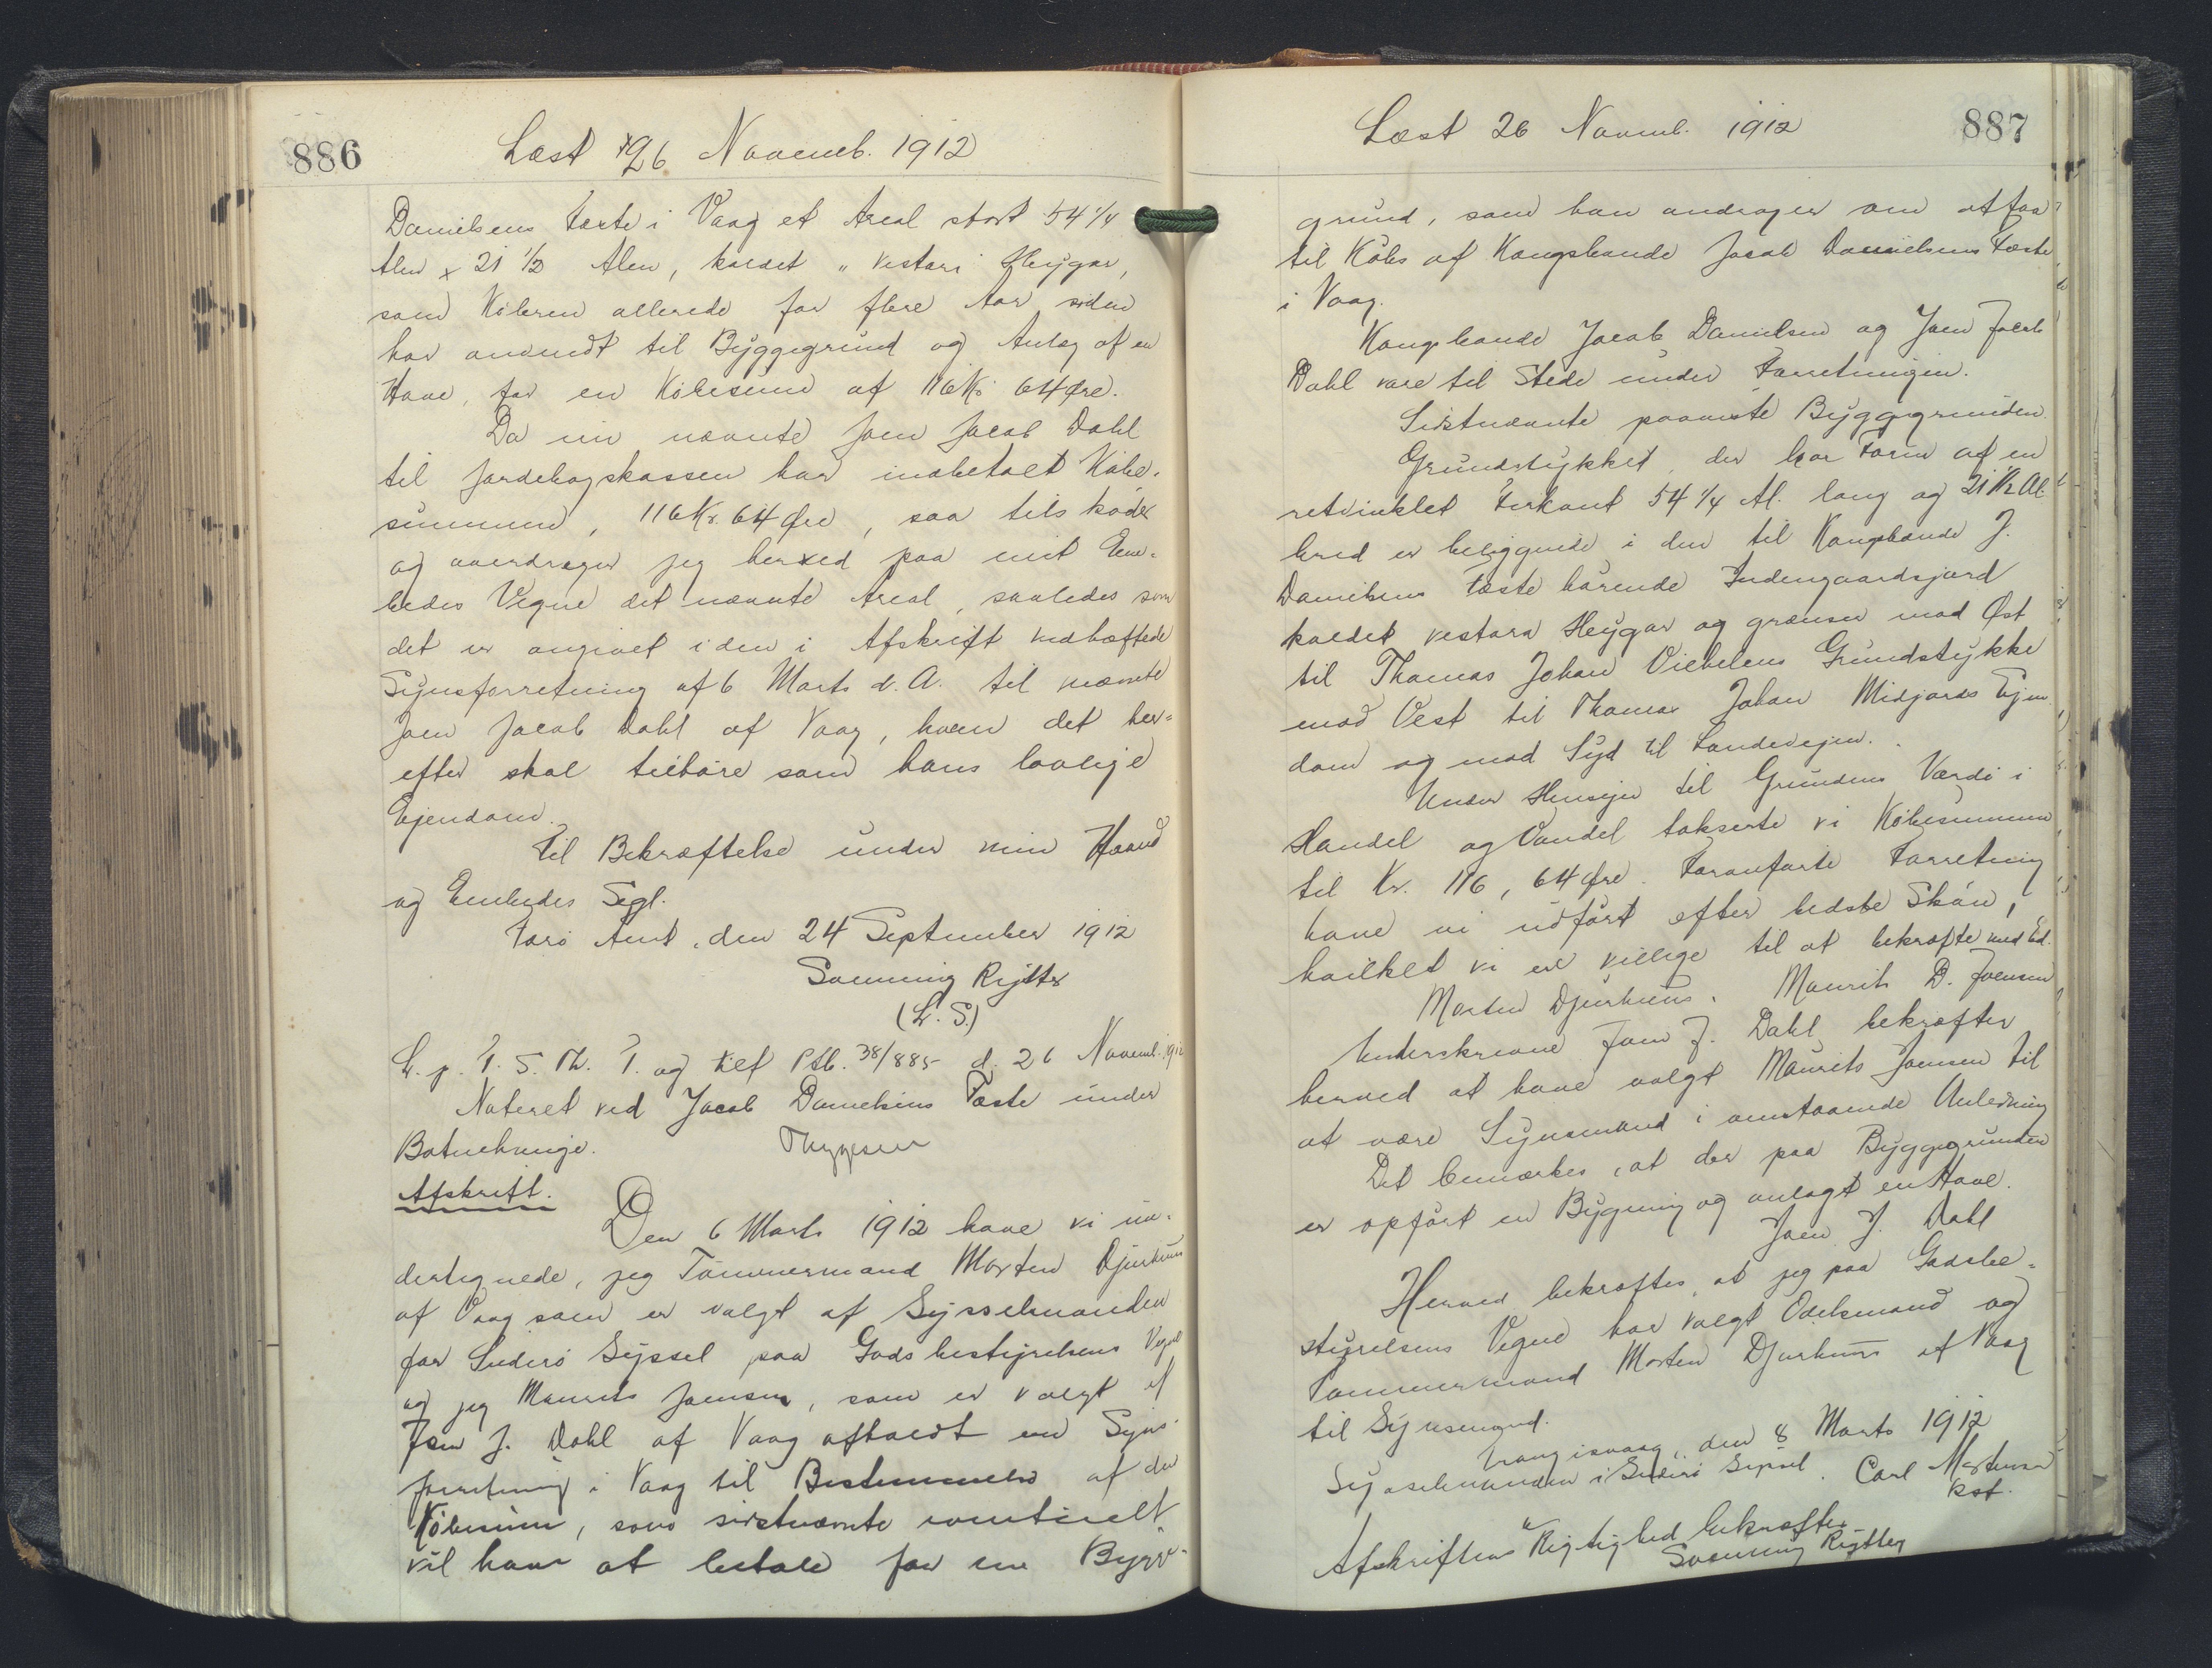 886
Læst 26 Novemb. 1912
Danielsens Fæste i Vaag et Areal stort 54 1/4
Alen x 21 1/2 Alen, kaldet „ vestari Heygar,
som Køberen allerede for flere Aar siden
har anvendt til Byggegrund og Anlæg af en
Have, for en Købesum af 116 Kr 64 Øre.
Da nu nævnte Joen Jacob Dahl
til Jordebogskassen har indbetalt Købe-
summen, 116 Kr. 64 Øre, saa tilskøder
og overdrager jeg herved paa mit Em-
bedes Vegne det nævnte Areal, saaledes som
det er angivet i den i Afskrift vedhæftede
Synsforretning af 6 Marts d. A. til nævnte
Joen Jacob Dahl af Vaag, hvem det her-
efter skal tilhøre som hans lovlige
Ejendom.
Til Bekræftelse under min Haand
og Embedes Segl.
Færø Amt, den 24 September 1912
Svenning Rytter
(L. S.)
L. p. F. S. Th. T. og tilf Ptb. 38/885 d. 26 Novemb. 1912
Noteret ved Jacob Danielsens Fæste under
Botnehauge. Thygesen
Afskrift.
Den 6 Marts 1912 have vi un-
dertegnede, jeg Tømmermand Morten Djurhuus
af Vaag som er valgt af Sysselmanden
for Suderø Syssel paa Godsbestyrelsens Vegne
og jeg Maurits Joensen, som er valgt af
Joen J. Dahl af Vaag afholdt en Syns-
forretning i Vaag til Bestemmelse af den
Købesum, som sidstnævnte eventuelt
vil have at betale for en Bygge-
887
Læst 26 Novemb. 1912
grund, som han andrager om at faa
til Købs af Kongsbonde Jacob Danielsens Fæste
i Vaag.
Kongsbonde Jacob Danielsen og Joen Jacob
Dahl vare til Stede under Forretningen.
Sidstnævnte paaviste Byggegrunden.
Grundstykket, der har Form af en
retvinklet Firkant 54 1/4 Al. lang og 21 1/2 Al.
bred er beliggende i den til Kongsbonde J.
Danielsens Fæste hørende Indengaardsjord
kaldet vestara Heygar og grænser mod Øst
til Thomas Johan Vilhelms Grundstykke
mod Vest til Thomas Johan Midjords Ejen
dom og mod Syd til Landevejen.
Under Hensyn til Grundens Værdi i
Handel og Vandel takserte vi Købesummen
til Kr. 116, 64 Øre. Foranførte Forretning
have vi udført efter bedste Skøn,
hvilket vi ere villige til at bekræfte med Ed.
Morten Djurhuus. Maurits D. Joensen
Underskrevne Joen J. Dahl bekræfter
herved at have valgt Maurits Joensen til
at være Synsmand i omstaaende Anledning
Det bemærkes, at der paa Byggegrunden
er opført en Bygning og anlagt en Have.
Joen J. Dahl
Herved bekræftes, at jeg paa Godsbe-
styrelsens Vegne har valgt Odelsmand og
Tømmermand Morten Djurhuus af Vaag
til Synsmand.
Trangisvaag, den 8 Marts 1912
Sysselmanden i Suderø Syssel. Carl Mortensen
kst.
Afskriftens Rigtighed bekræftes
Svenning Rytter